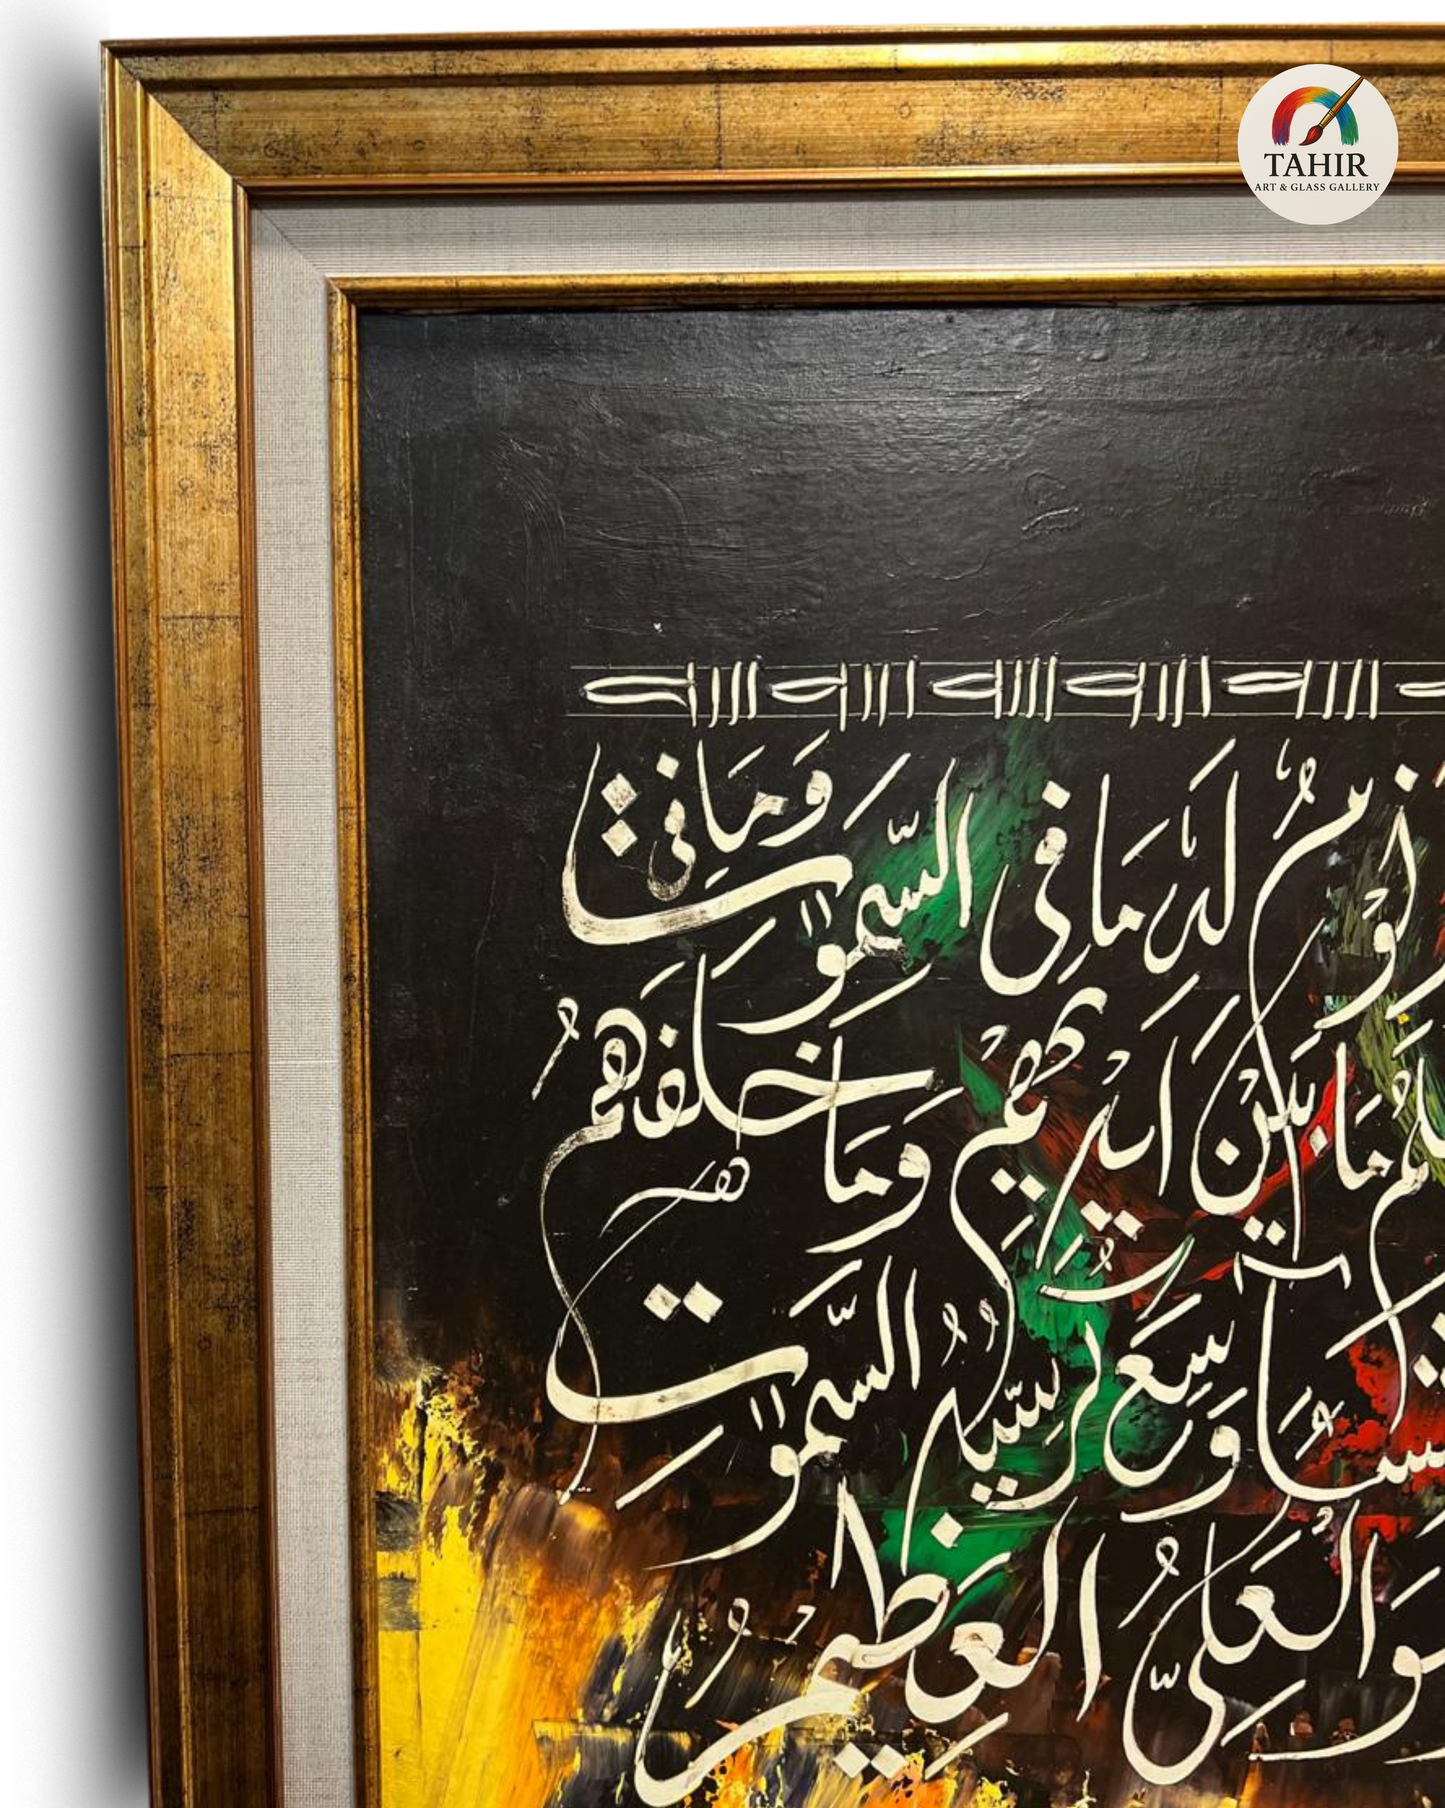 TAHIR
ART & GLASS GALLERY
نَوْمٌ لَهٗ مَا فِی السَّمٰوٰتِ وَمَا فِی
مَا بَیْنَ اَیْدِیْهِمْ وَمَا خَلْفَهُمْ
شَآءَ وَسِعَ کُرْسِیُّهُ السَّمٰوٰتِ
وَهُوَ الْعَلِیُّ الْعَظِیْمُ